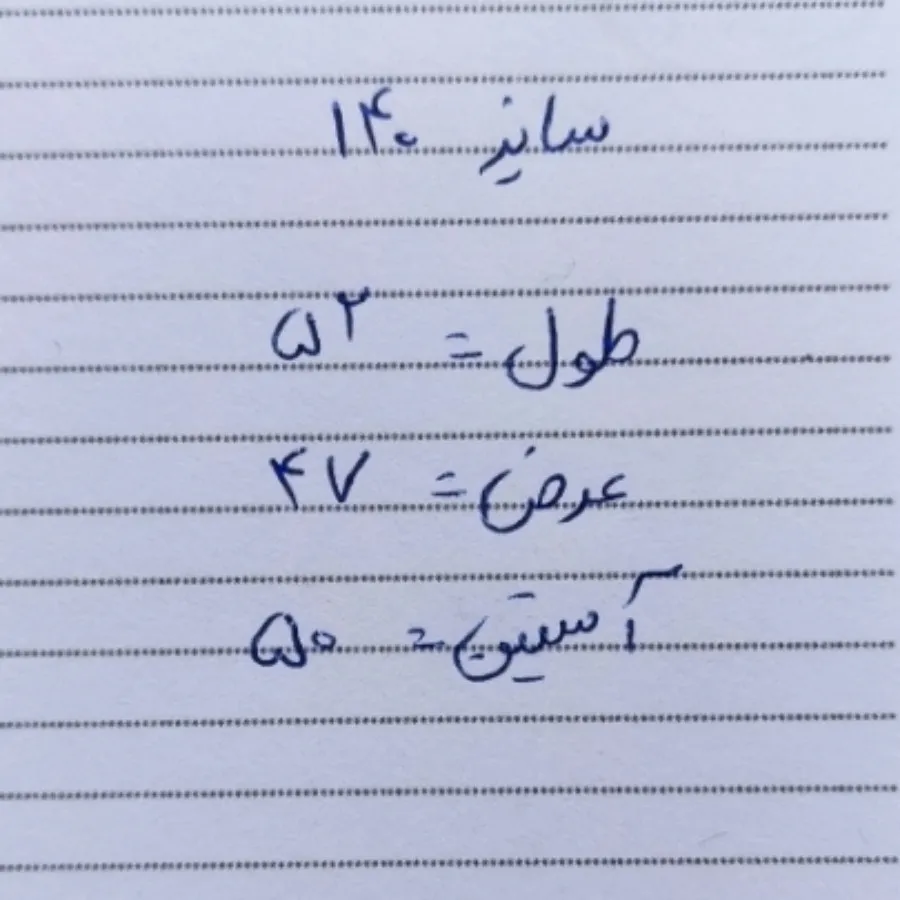 سایز ۱۴۰
طول = ۵۲
عرض = ۴۷
آستین = ۵۰